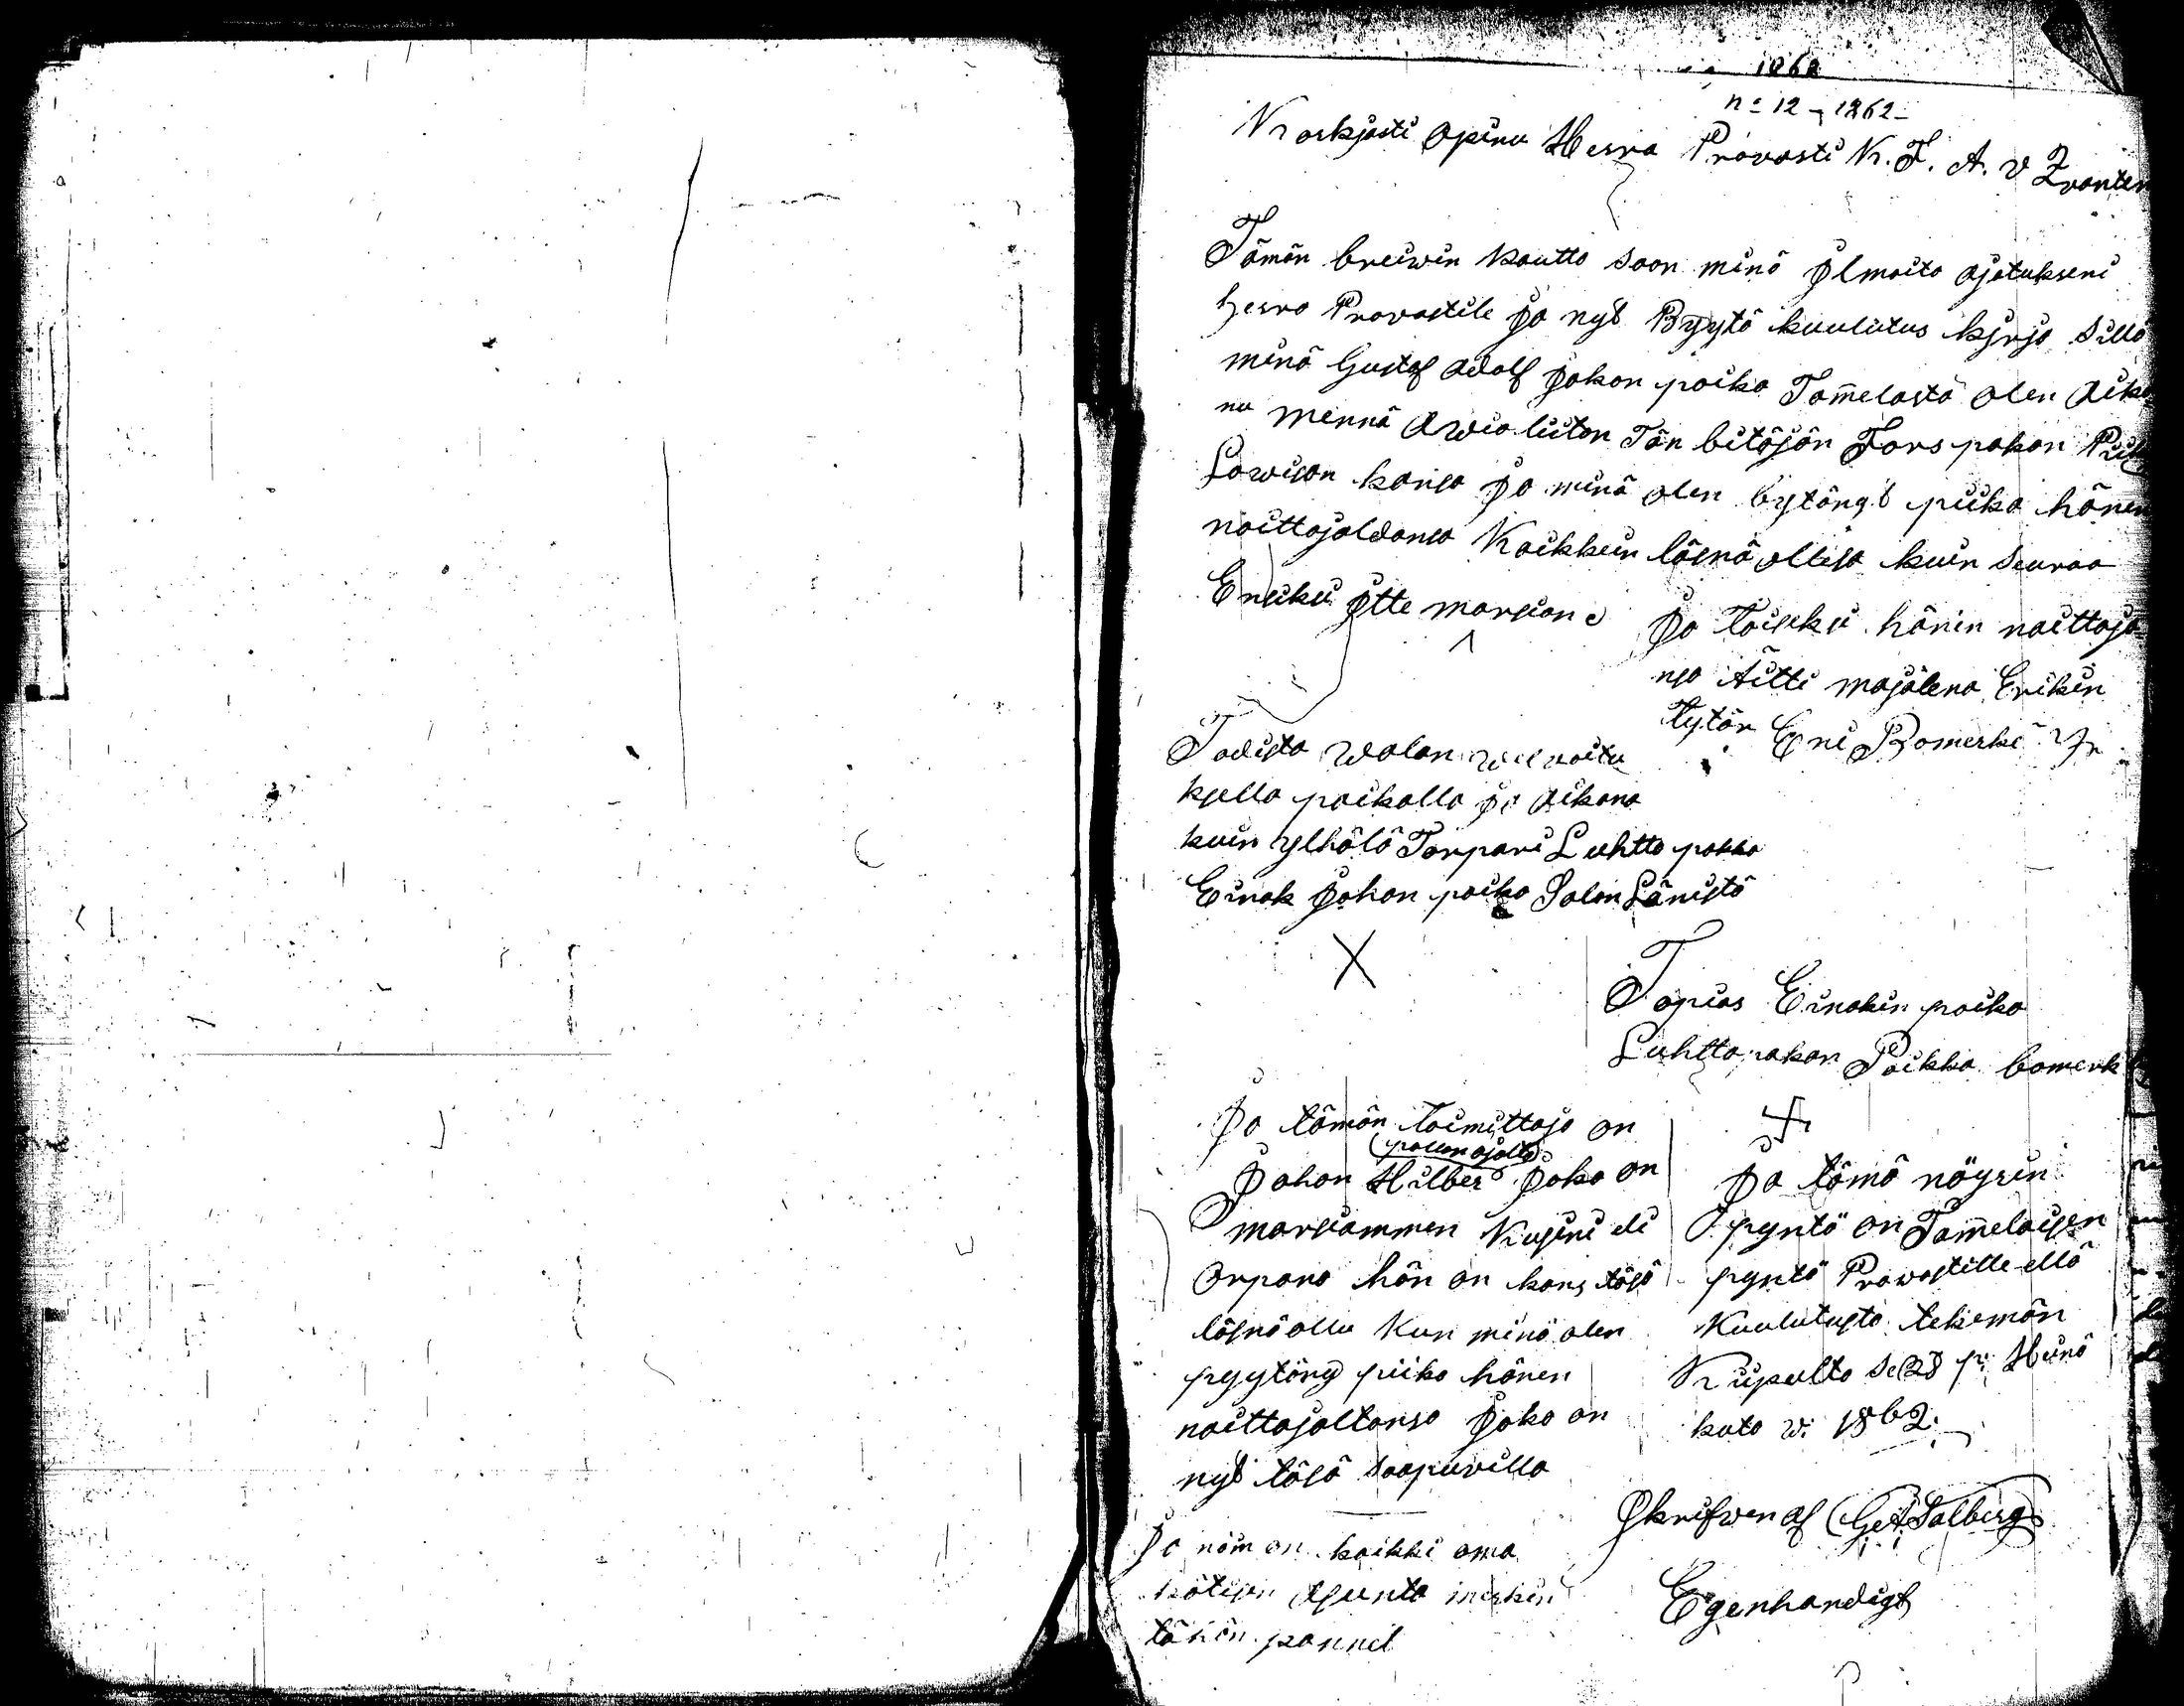 1862
no 12 - 1862 -
Korkjasti Opinu Herra Provasti K. F. A. v
Tämän breiwin kautta saan minä Ilmaita ajatukseni
herra Provastile Ja nyt Byytä kuulutus kjrja Sillä
minä Gustaf Adolf Johan poika Tam̄elasta olen Aiko
nu mennä Awioliiton Tän bitäjän Fors pakan
Lowisan kansa Ja minä olen bytänyt piika hänen
naittajaldansa Kaikkein läsnä ollesa kuin Seuraa
Ensiksi Itte morsian
Ja Toiseksi hänin naittaja
nsa Äitti majalena Erikin
tytär Eni Bomerki
Todista walan
kjella paikalla ja Aikana
kuin ylhälä Torpari Luhtta pakka
Eirak Johan poika Salon Länistä
X
Topias Eirakin poika
Luhttapakan Poikka bomerk
Ja tämän toimittaja on
pallon ajalta
Johan Hilber Joka on
morsiammen Kusini eli
Orpana hän on kans täsä
läsnä ollu Kun minä olen
pyytäny piika hänen
naittajaltansa Joka on
nyt täsä saapuvilla
Ja näin on kaikki oma
kätisen Asunta merkin
tähän pannet
Ja tämä nöyrin
pyntö on Tam̄elaisen
pyntö Prowastille että
Kuulutusta tekemän
Kupulta se 28 p: Heinä
kuto w: 1862.
Skrifwen af G: A Salberg
Egenhandigt